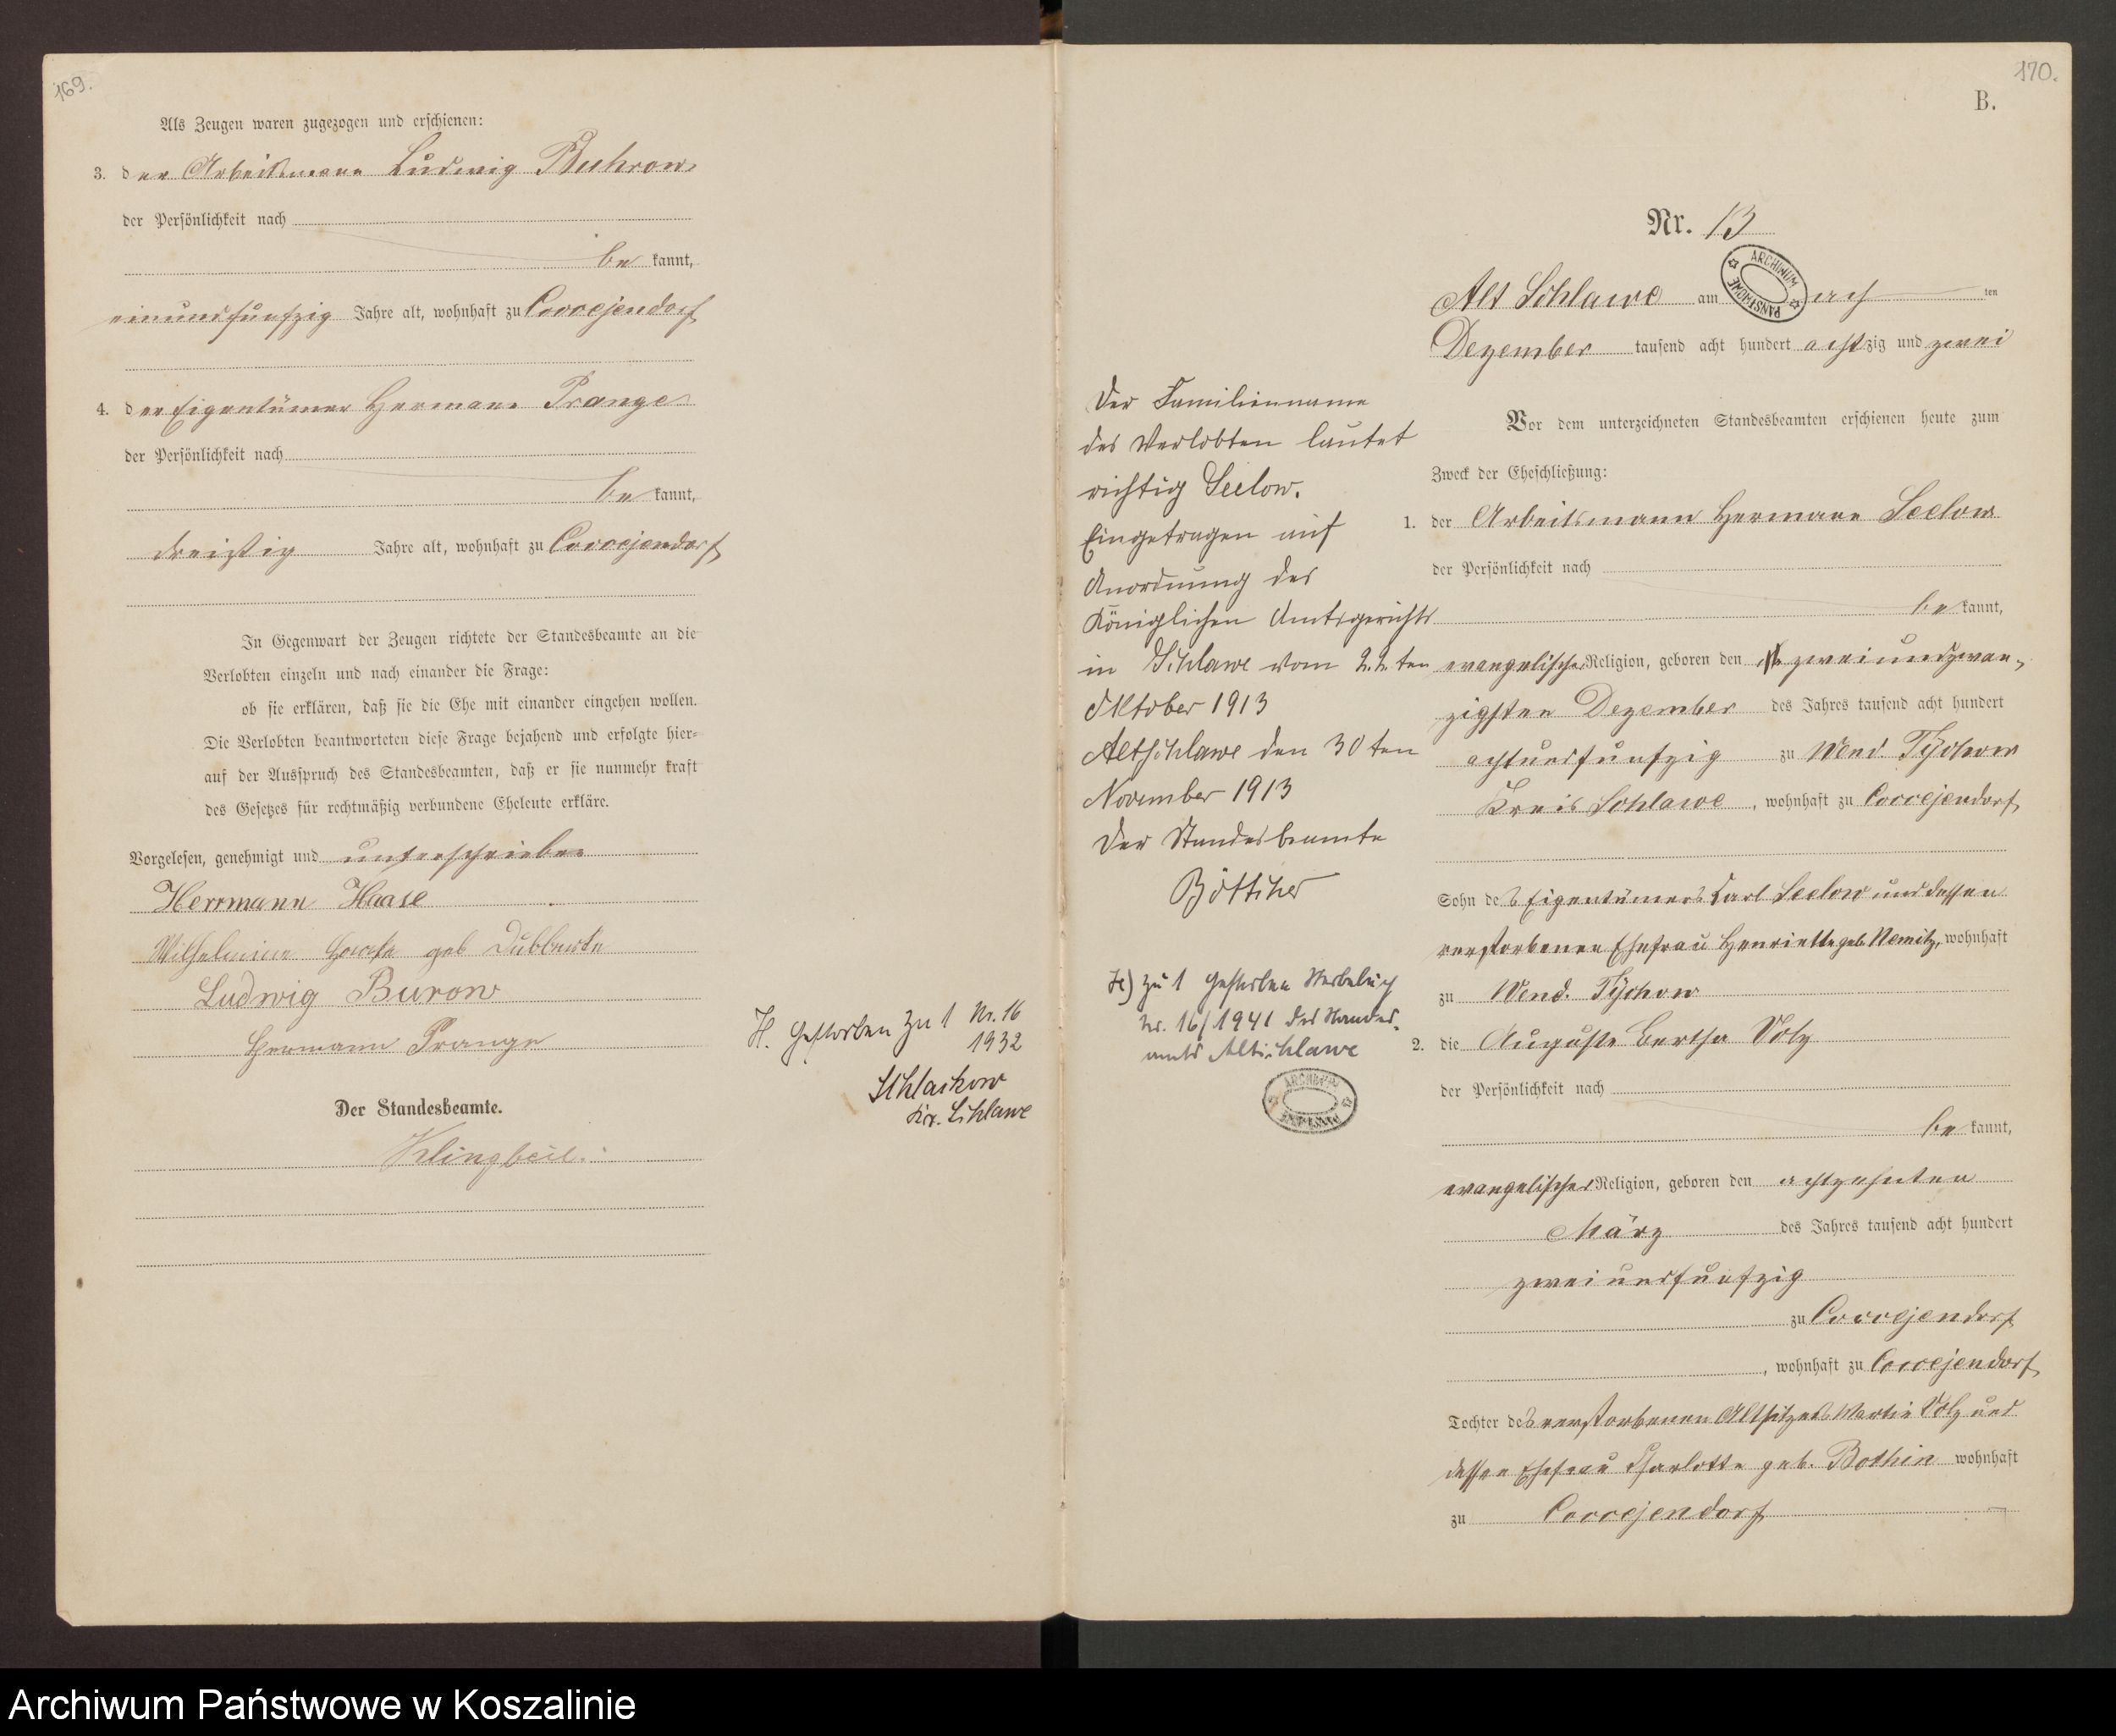 169.
Als Zeugen waren zugezogen und erschienen:
3. der Arbeitsmann Ludwig Buhrow
der Persönlichkeit nach
be kannt,
einundfünfzig Jahre alt, wohnhaft zu Coccejendorf
4. der Eigentümer Hermann Prange
der Persönlichkeit nach
be kannt,
dreißig Jahre alt, wohnhaft zu Coccejendorf
In Gegenwart der Zeugen richtete der Standesbeamte an die
Verlobten einzeln und nach einander die Frage:
ob sie erklären, daß sie die Ehe mit einander eingehen wollen.
Die Verlobten beantworteten diese Frage bejahend und erfolgte hier-
auf der Ausspruch des Standesbeamten, daß er sie nunmehr kraft
des Gesetzes für rechtmäßig verbundene Eheleute erkläre.
Vorgelesen, genehmigt und unterschrieben
Herrmann Haase
Wilhelmine Haase geb Dubberke
Ludwig Burow
Hermann Prange
Der Standesbeamte.
Klingbeil.
H. Gestorben zu 1 Nr. 16
1932
Schlackow
Kr. Schlawe
170.
B.
Nr. 13
Alt Schlawe am ach ten
ARCHIWUM PAŃSTWOWE
Dezember tausend acht hundert achtzig und zwei
Vor dem unterzeichneten Standesbeamten erschienen heute zum
Zweck der Eheschließung:
1. der Arbeitsmann Hermann Seelow
der Persönlichkeit nach
be kannt,
evangelischer Religion, geboren den zweiundzwan-
zigsten Dezember des Jahres tausend acht hundert
achtundfünfzig zu Wend. Tychow
Kreis Schlawe, wohnhaft zu Coccejendorf
Sohn des Eigentümers Carl Seelow und dessen
verstorbenen Ehefrau Henriette geb. Nemitz, wohnhaft
zu Wend. Tychow
2. die Auguste Bertha Volz
der Persönlichkeit nach
be kannt,
evangelischer Religion, geboren den achtzehnten
März des Jahres tausend acht hundert
zweiundfünfzig
zu Coccejendorf
, wohnhaft zu Coccejendorf
Tochter des verstorbenen Altsitzers Martin Volz und
dessen Ehefrau Charlotte geb. Bothin wohnhaft
zu Coccejendorf
Der Familienname
des Verlobten lautet
richtig Seelow.
Eingetragen auf
Anordnung des
Königlichen Amtsgerichts
in Schlawe vom 22ten
Oktober 1913
Altschlawe den 30ten
November 1913
Der Standesbeamte
Böttcher
H) zu 1 gestorben Sterbebuch
Nr. 16/1941 des Standes-
amts Altschlawe
ARCHIWUM PAŃSTWOWE
Archiwum Państwowe w Koszalinie